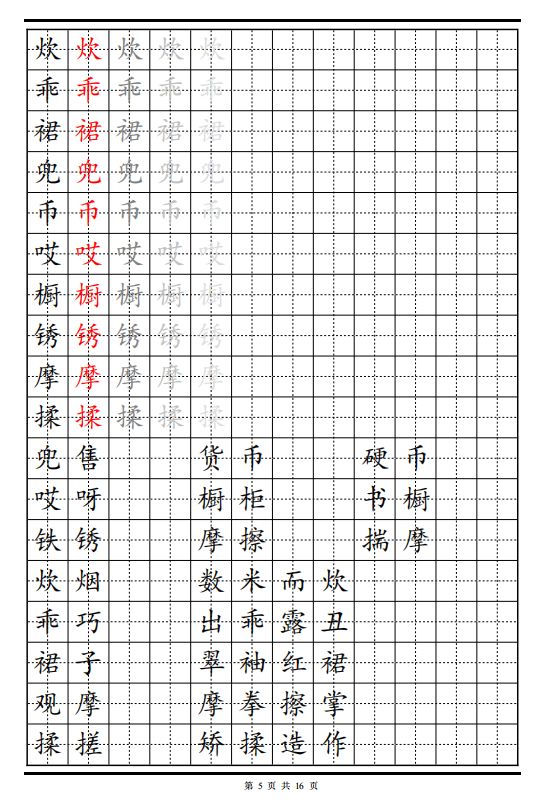 炊 炊 炊 炊 炊
乖 乖 乖 乖 乖
裙 裙 裙 裙 裙
兜 兜 兜 兜 兜
币 币 币 币 币
哎 哎 哎 哎 哎
橱 橱 橱 橱 橱
锈 锈 锈 锈 锈
摩 摩 摩 摩 摩
揉 揉 揉 揉 揉
兜售 货币 硬币
哎呀 橱柜 书橱
铁锈 摩擦 揣摩
炊烟 数米而炊
乖巧 出乖露丑
裙子 翠袖红裙
观摩 摩拳擦掌
揉搓 矫揉造作
第 5 页 共 16 页